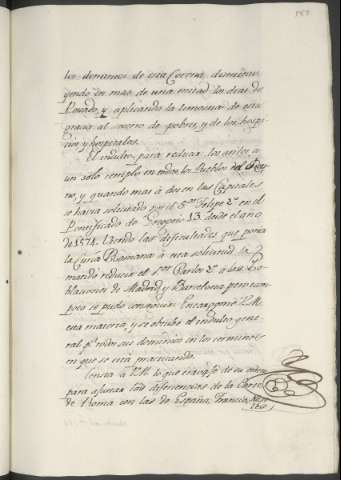 los dominios de esta Corona, disminu-
yendo en mas de una mitad los dias de
Pecado, y aplicando la limosna de esta
gracia al socorro de pobres, y de los hospi-
cios y hospitales.
El indulto para reducir los asilos a
un solo templo en todos los Pueblos del
no, y quando mas à dos en las Capitales
se havia solicitado por el S.or Felipe 2.º en el
Pontificado de Gregorio 13. desde el año
de 1574. Viendo las dificultades que ponia
la Curia Romana à esta solicitud, la
mandó reducir el S.or Carlos 2.º a las Po-
blaciones de Madrid y Barcelona pero tam-
poco se pudo conseguir. Encargome V.M.
esta materia, y se obtubo el indulto gene-
ral p.a todos sus dominios en los terminos
en que se está practicando.
Consta à V.M. lo que trabajé de su orden
para ajustar las diferencias de la Corte
de Roma con las de España, Francia,